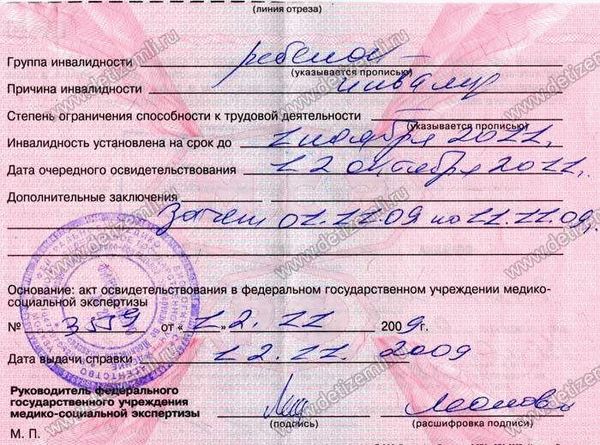 (линия отреза)
Группа инвалидности ребенок
(указывается прописью)
Причина инвалидности инвалид
Степень ограничения способности к трудовой деятельности
(указывается прописью)
Инвалидность установлена на срок до 1 ноября 2011,
Дата очередного освидетельствования 12 октября 2011.
Дополнительные заключения
Зачет 01.11.09 по 11.11.09.
Основание: акт освидетельствования в федеральном государственном учреждении медико-
социальной экспертизы
№ 3559 от « 12. 11 2009г.
Дата выдачи справки 12. 11. 2009
Руководитель федерального
государственного учреждения
медико-социальной экспертизы
(подпись) (расшифровка подписи)
М. П.
www.detizemli.ru